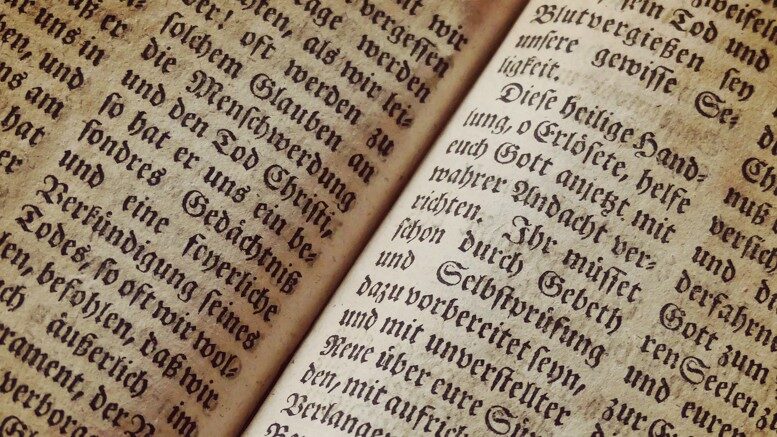 uns in
und
uns am
hat
wir
vergessen
werden
als wir lei-
oft werden zu
solchem Glauben an
die Menschwerdung
und den Tod Christi,
so hat er uns ein be-
sondres Gedächtniß
und eine feyerliche
Verkündigung seines
Todes, so oft wir wol-
befohlen, daß wir
äußerlich im
der
sein Tod und
Blutvergießen sey
unsere gewisse Se-
ligkeit.
Diese heilige Hand-
lung, o Erlösete, helfe
euch Gott anjetzt mit
wahrer Andacht ver-
richten. Ihr müsset
schon durch Gebeth
und Selbstprüfung
dazu vorbereitet seyn,
und mit unverstellter
Reue über eure Sün
den, mit aufrich
Verlangen
und
Gott zum
ren Seelen
und euren
zur